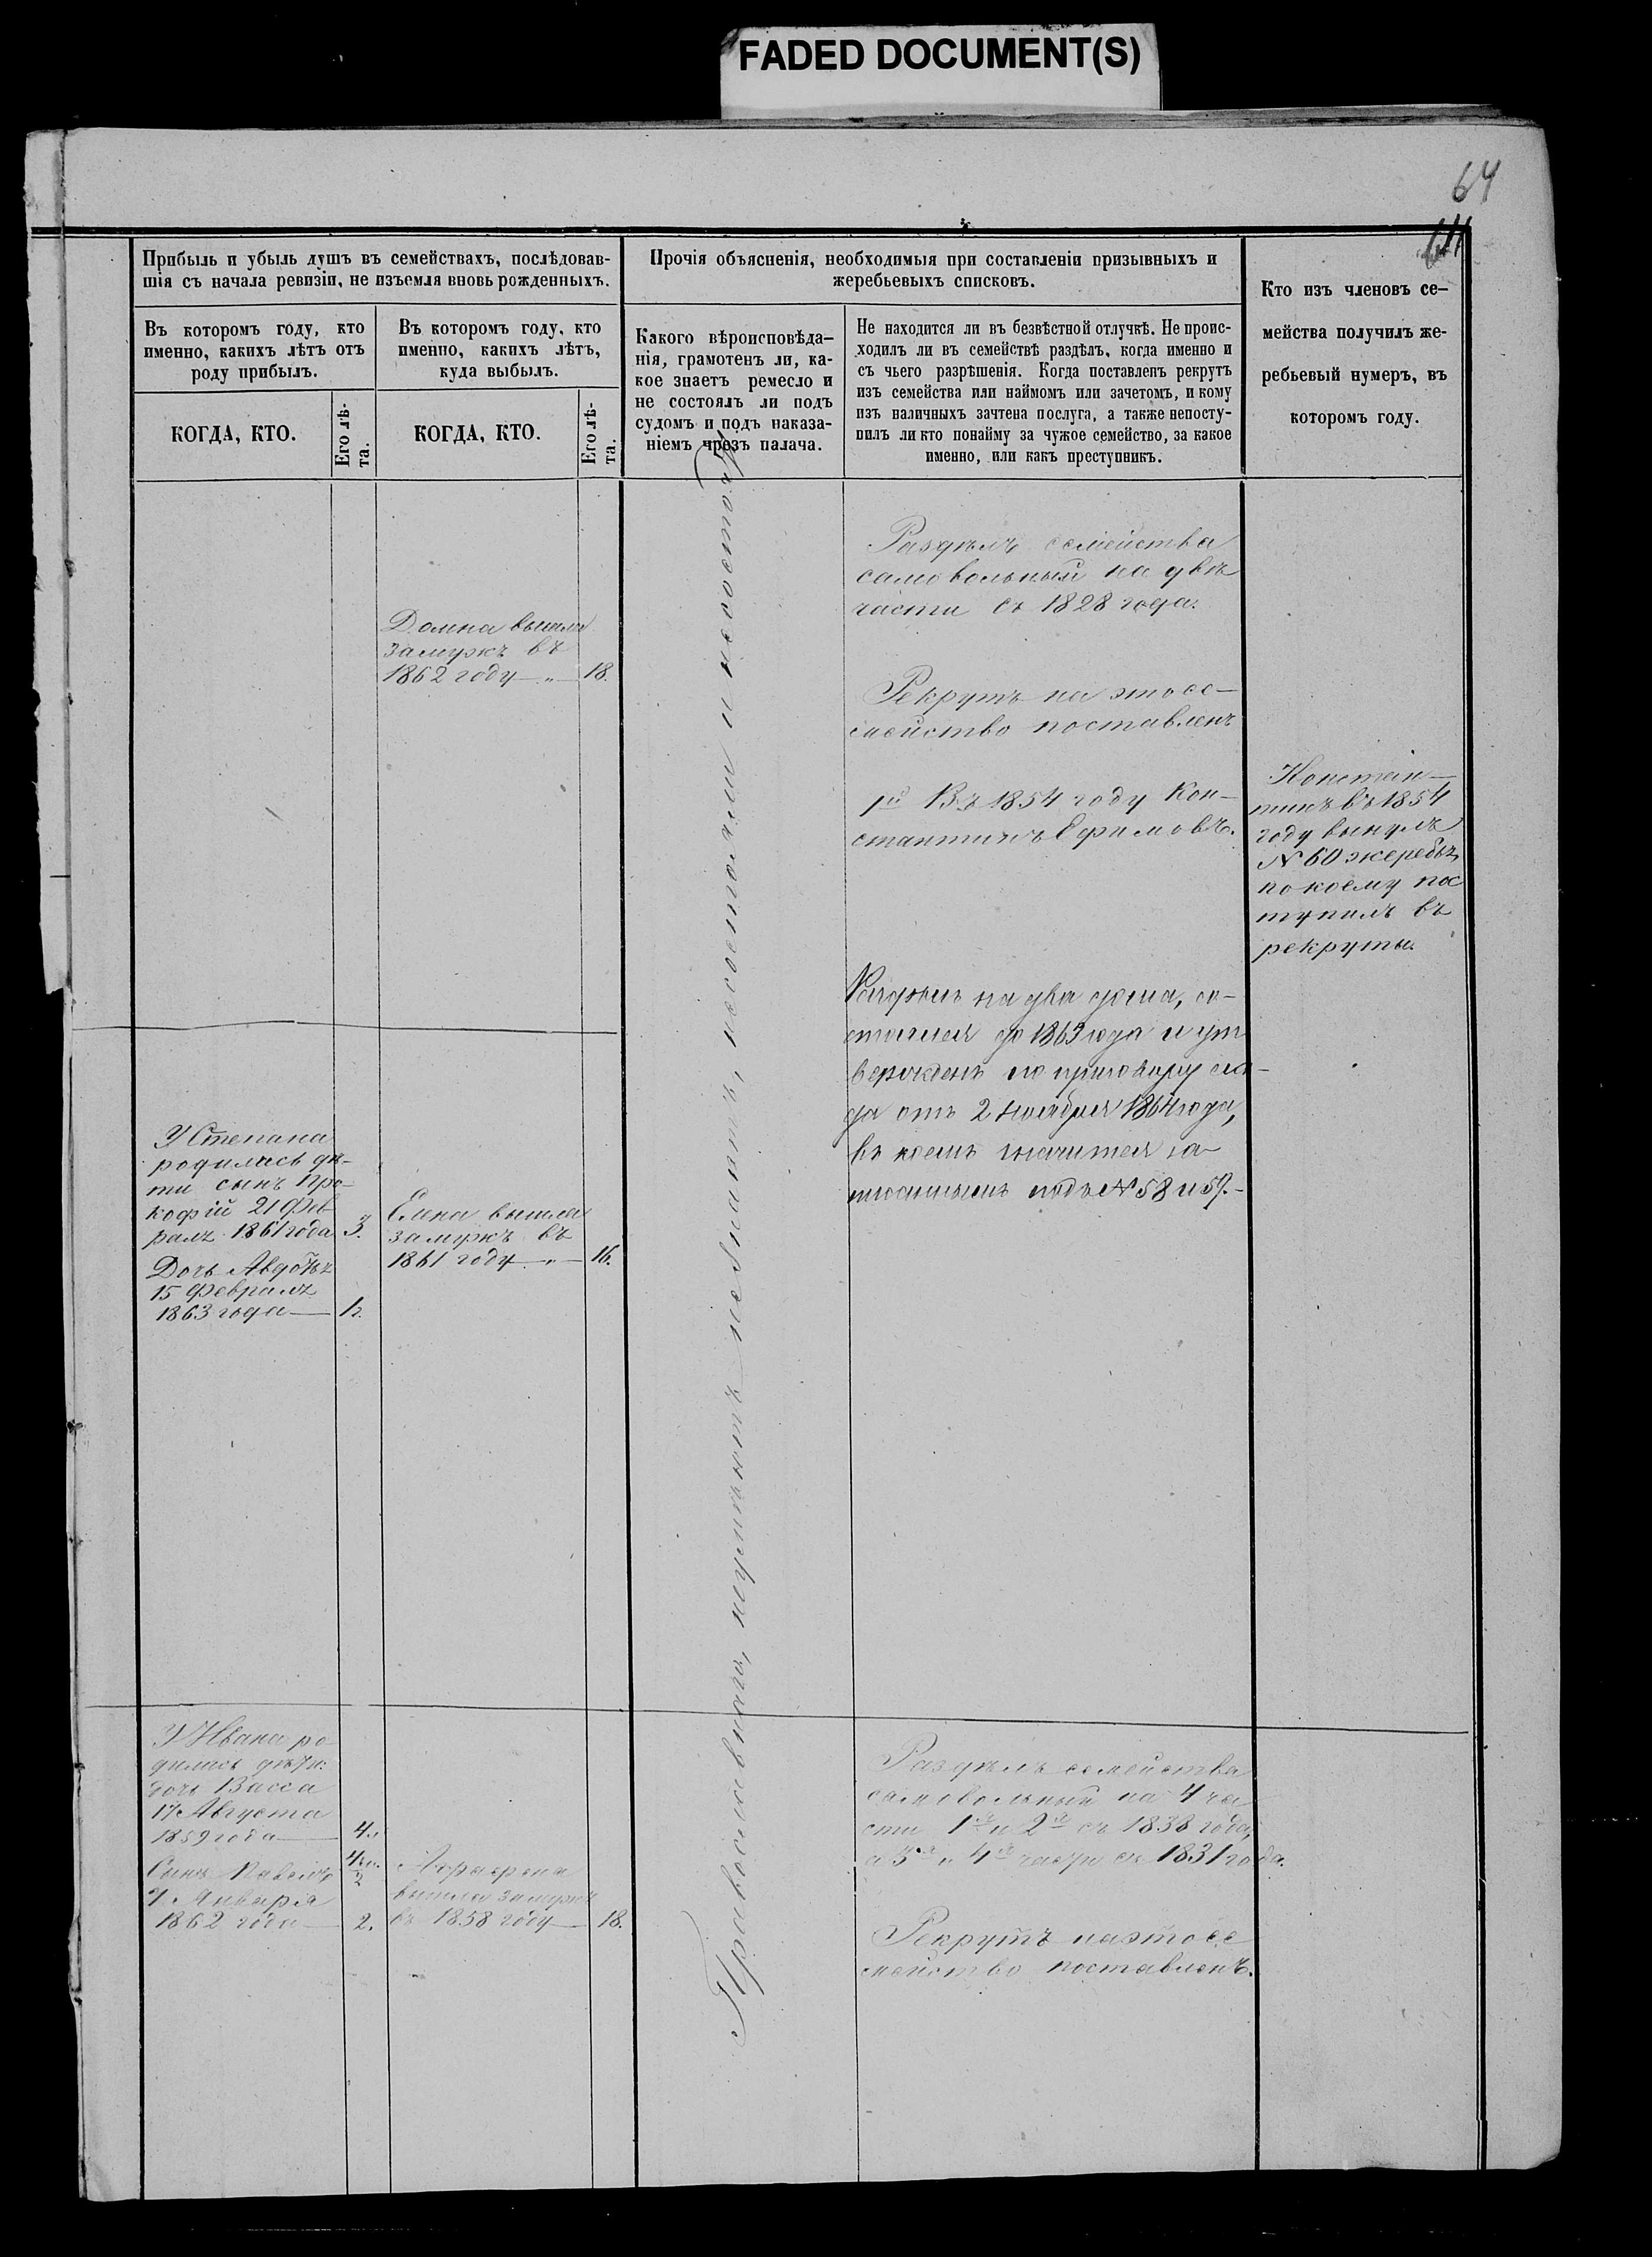 FADED DOCUMENT(S)
64
64
Прибыль и убыль душъ въ семействахъ, послѣдовав-
шія съ начала ревизіи, не изъемля вновь рожденныхъ.
Въ которомъ году, кто
именно, какихъ лѣтъ отъ
роду прибылъ.
Въ которомъ году, кто
именно, какихъ лѣтъ,
куда выбылъ.
КОГДА, КТО.
Его лѣ-
та.
КОГДА, КТО.
Его лѣ-
та.
Прочія объясненія, необходимыя при составленіи призывныхъ и
жеребьевыхъ списковъ.
Какого вѣроисповѣда-
нія, грамотенъ ли, ка-
кое знаетъ ремесло и
не состоялъ ли подъ
судомъ и подъ наказа-
ніемъ чрезъ палача.
Не находится ли въ безвѣстной отлучкѣ. Не проис-
ходилъ ли въ семействѣ раздѣлъ, когда именно и
съ чьего разрѣшенія. Когда поставленъ рекрутъ
изъ семейства или наймомъ или зачетомъ, и кому
изъ наличныхъ зачтена послуга, а также непосту-
пилъ ли кто понайму за чужое семейство, за какое
именно, или какъ преступникъ.
Кто изъ членовъ се-
мейства получилъ же-
ребьевый нумеръ, въ
которомъ году.
Домна вышла
замужъ въ
1862 году — 18.
Раздѣлъ семейства
самовольный на двѣ
части съ 1828 года.
Рекрутъ на это се-
мейство поставленъ
Въ 1854 году Кон-
стантинъ Ефимовъ.
Констан-
тинъ въ 1854
году вынулъ
№ 60 жеребъ,
по коему пос
тупилъ въ
рекруты.
Раздѣлъ на два дома, со-
стоялся до 1863 года и ут
вержденъ по приговору схо-
да отъ 2 Ноября 1864 года,
въ коемъ значится за
писаннымъ подъ № 58 и 59.-
У Степана
родились дѣ-
ти сынъ Про-
кофій 21 Фев
раля 1861 года 3.
Дочь Авдотья
15 Февраля
1863 года — 1.
Елена вышла
замужъ въ
1861 году — 16.
Православнаго,
У Ивана ро
дились дѣти:
дочь Васса
17 Августа
1859 года — 4.
Сынъ Павелъ
Января
1862 года — 2.
вышла замужъ
въ 1858 году — 18.
Раздѣлъ семейства
самовольный на 4 ча
сти 1я и 2я съ 1838 года,
а 3я и 4я части съ 1831 года.
Рекрутъ на это се
мейство поставленъ.